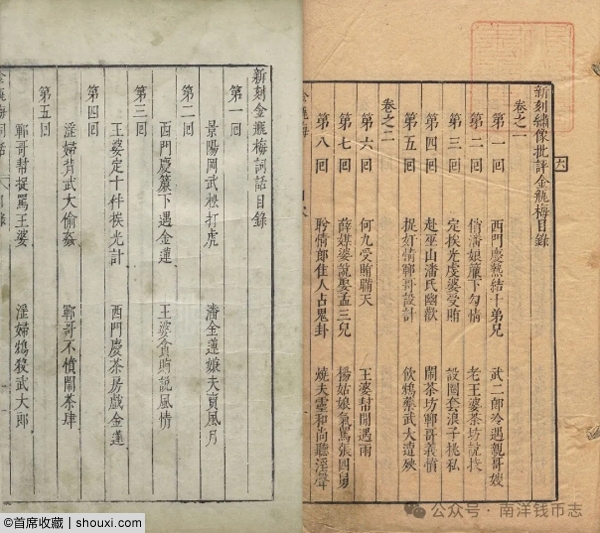 新刻繡像批評金瓶梅目錄
卷之一
第一回 西門慶熱結十弟兄 武二郎冷遇親哥嫂
第二回 俏潘娘簾下勾情 老王婆茶坊說技
第三回 定挨光虔婆受賄 設圈套浪子挑私
第四回 赴巫山潘氏幽歡 鬧茶坊鄆哥義憤
第五回 捉奸情鄆哥設計 飲鴆藥武大遭殃
卷之二
第六回 何九受賄瞞天 王婆幇閒遇雨
第七回 薛媒婆說娶孟三兒 楊姑娘氣罵張四舅
第八回 盼情郎佳人占鬼卦 燒夫靈和尚聽淫聲
新刻金瓶梅詞話目錄
第一回
景陽岡武松打虎 潘金蓮嫌夫賣風月
第二回
西門慶簾下遇金蓮 王婆貪賄說風情
第三回
王婆定十件挨光計 西門慶茶房戲金蓮
第四回
淫婦背武大偷姦 鄆哥不憤鬧茶肆
第五回
鄆哥幫捉罵王婆 淫婦鴆殺武大郎
©首席收藏 | shouxi.com
公众号·南洋钱币志